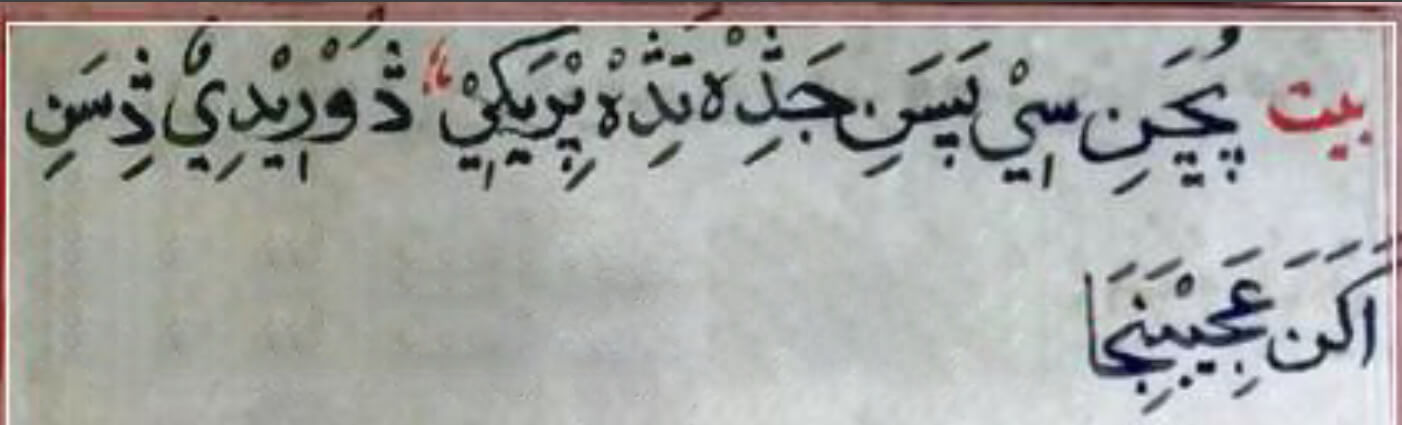 بيت پُچَنِ سِيْ پَسَنِ جَڎِهْ تَڎِهْ پِرْيَكِيْ ڎَوْرِيْدِيْ ڎِسَنِ
اَكَنَ عَجِيْبِنَجَا